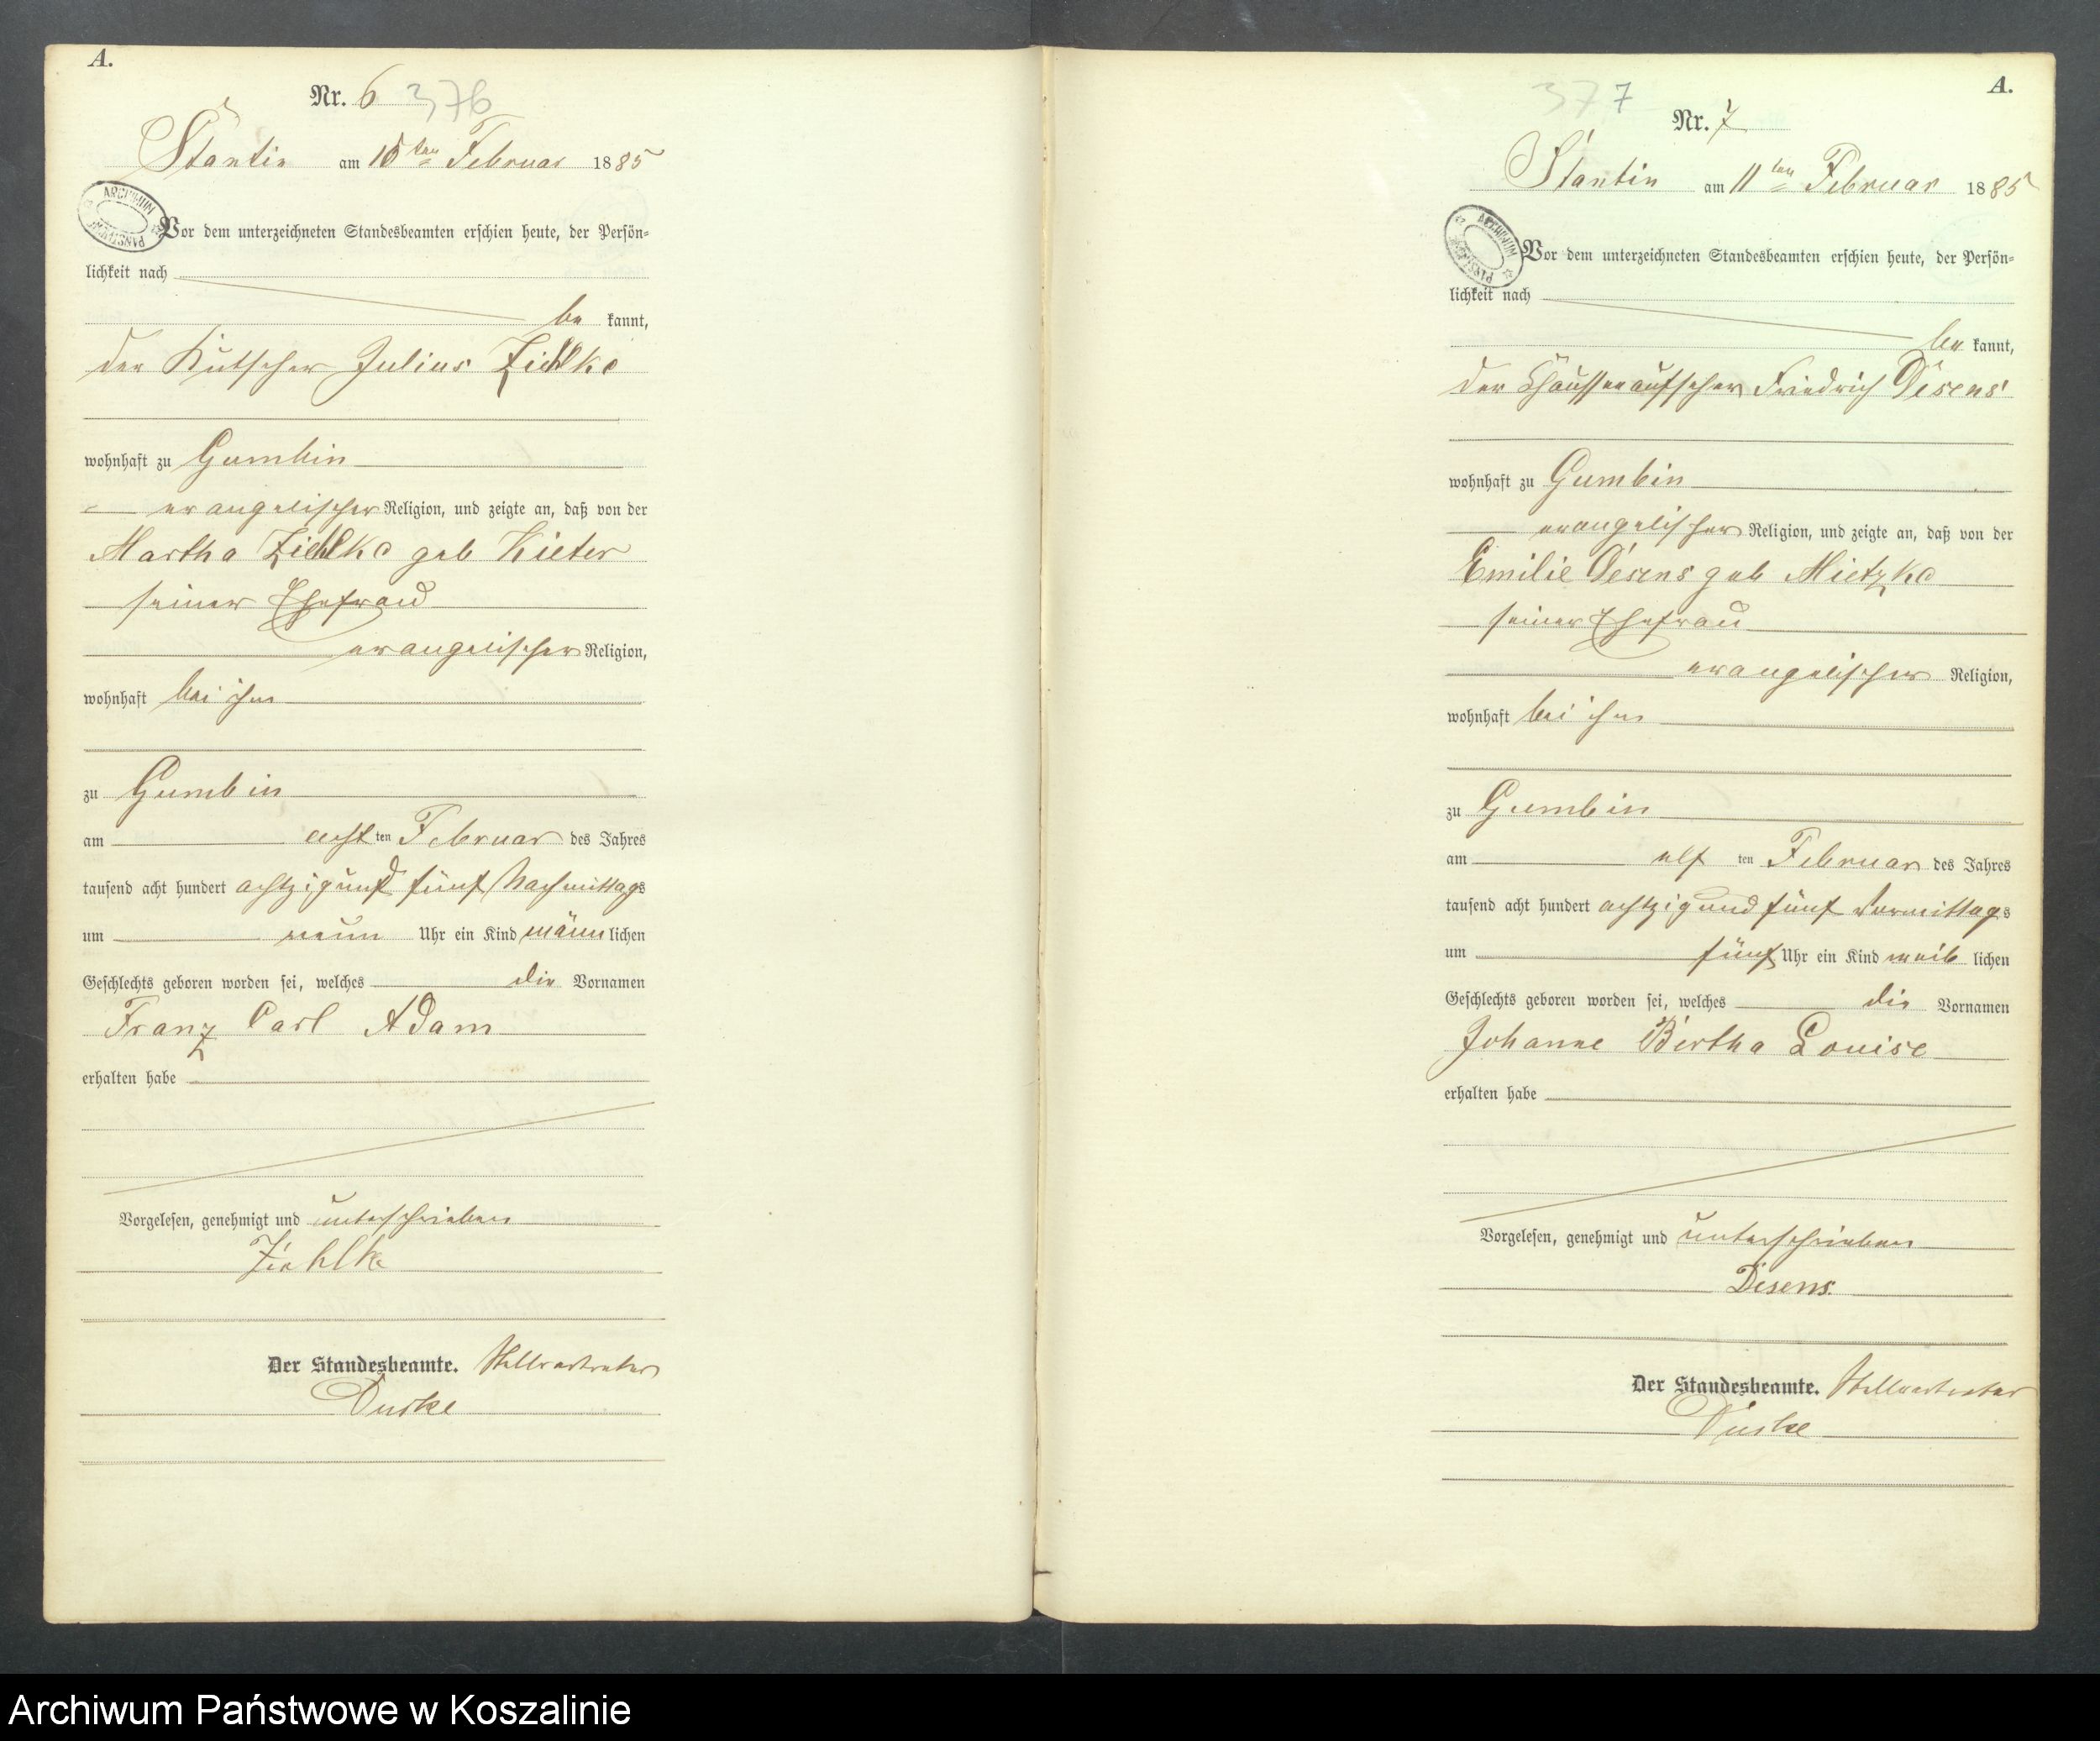 A.
Nr. 6 376
Stantin am 10ten Februar 1885
ARCHIWUM PAŃSTWOWE
Vor dem unterzeichneten Standesbeamten erschien heute, der Persön-
lichkeit nach
be kannt,
der Kutscher Julius Ziehlke
wohnhaft zu Gumbin
evangelischer Religion, und zeigte an, daß von der
Martha Ziehlke geb Kieter
seiner Ehefrau
evangelischer Religion,
wohnhaft bei ihm
zu Gumbin
am acht ten Februar des Jahres
tausend acht hundert achtzig und fünf Nachmittags
um neun Uhr ein Kind männ lichen
Geschlechts geboren worden sei, welches die Vornamen
Franz Carl Adam
erhalten habe
Vorgelesen, genehmigt und unterschrieben
Ziehlke
Der Standesbeamte. Stellvertreter
A.
377
Nr. 7
Stantin am 11ten Februar 1885
ARCHIWUM PAŃSTWOWE
Vor dem unterzeichneten Standesbeamten erschien heute, der Persön-
lichkeit nach
be kannt,
der Chausseeaufseher Friedrich Desens
wohnhaft zu Gumbin
evangelischer Religion, und zeigte an, daß von der
Emilie Desens geb Mietzke
seiner Ehefrau
evangelischer Religion,
wohnhaft bei ihm
zu Gumbin
am elf ten Februar des Jahres
tausend acht hundert achtzig und fünf Vormittags
um fünf Uhr ein Kind weib lichen
Geschlechts geboren worden sei, welches die Vornamen
Johanne Bertha Louise
erhalten habe
Vorgelesen, genehmigt und unterschrieben
Desens.
Der Standesbeamte. Stellvertreter
Archiwum Państwowe w Koszalinie